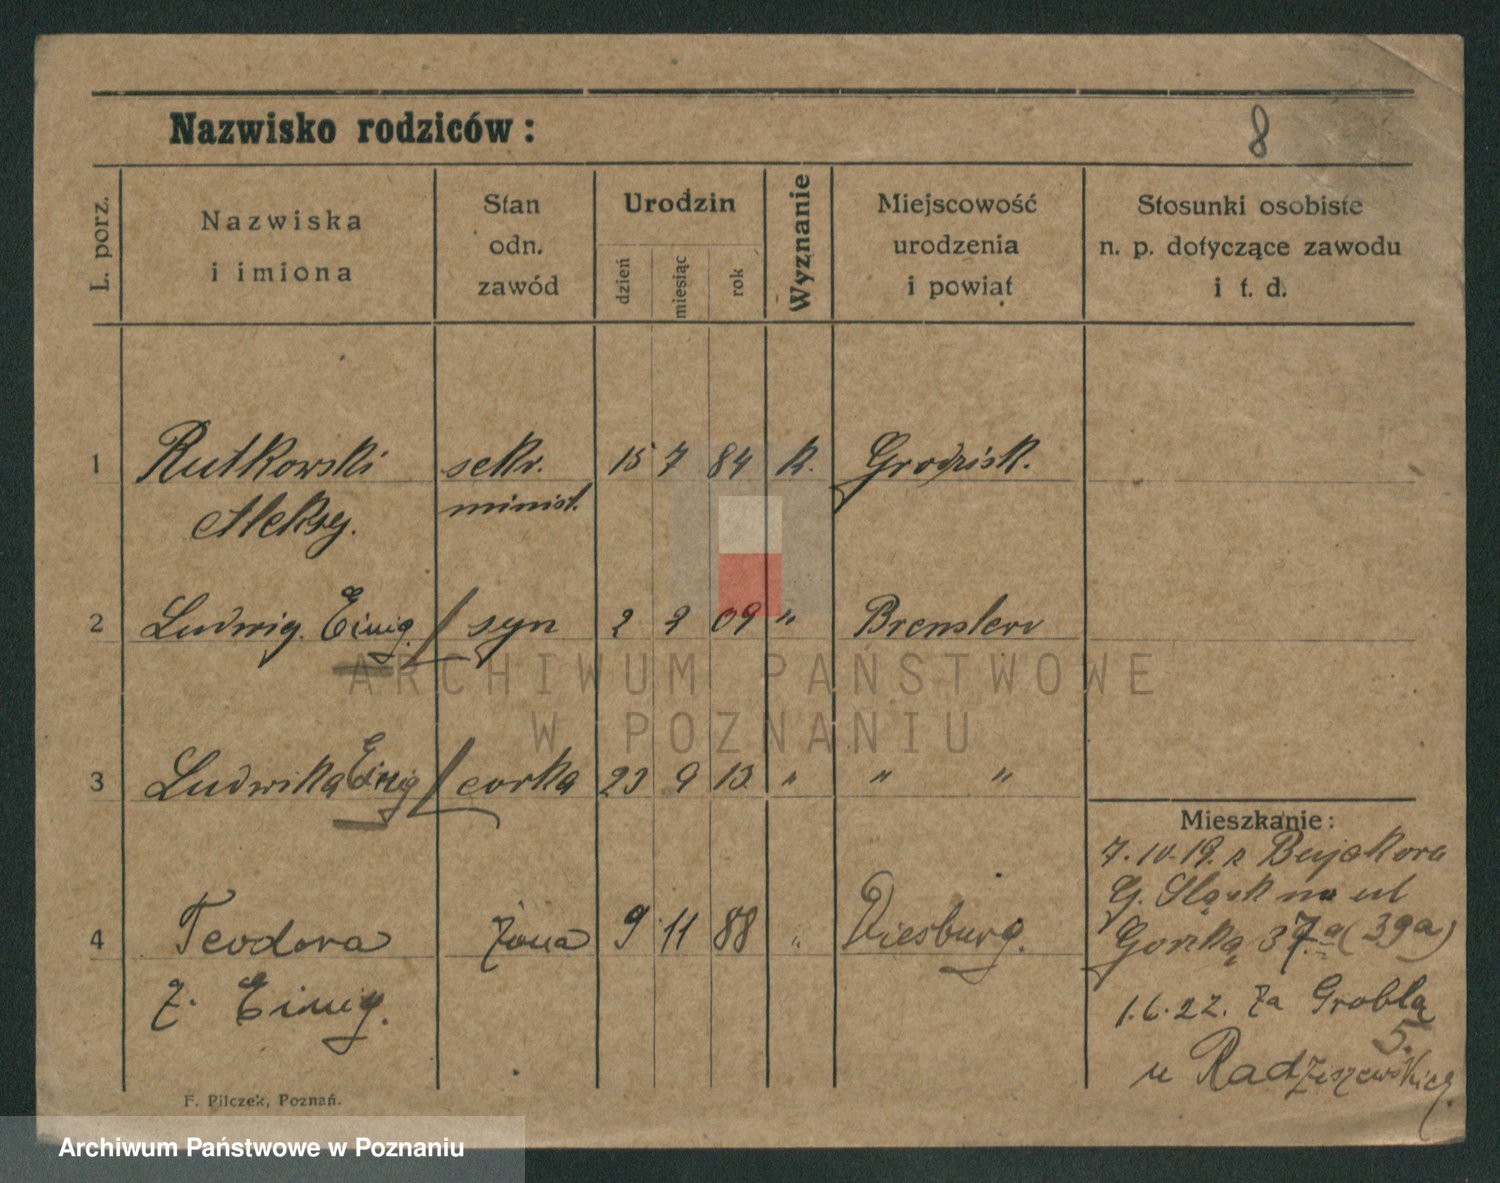 Nazwisko rodziców:
8
L. porz.
Nazwiska
i imiona
Stan
odn.
zawód
Urodzin
dzień
miesiąc
rok
Wyznanie
Miejscowość
urodzenia
i powiat
Stosunki osobiste
n. p. dotyczące zawodu
i t. d.
1 Rutkowski sekr. 15 7 84 k. Grodzisk.
Aleksy. minist.
2 Ludwig. Einig. syn 2 2 09 " Brenslern
3 Ludwika Einig córka 23 9 13 " " "
Mieszkanie:
7.10.19. z Bujakova
G. Śląsk na ul
4 Teodora żona 9 11 88 " Diesburg. Gorzką 37a (39a)
z. Einig. 1.6.22. Za Groblą
5.
u Radziszewskiej.
F. Pilczek, Poznań.
ARCHIWUM PAŃSTWOWE
W POZNANIU
Archiwum Państwowe w Poznaniu